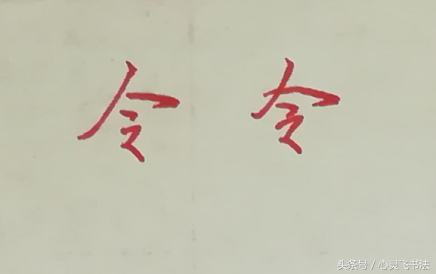 令 令
头条号 / 心灵飞书法